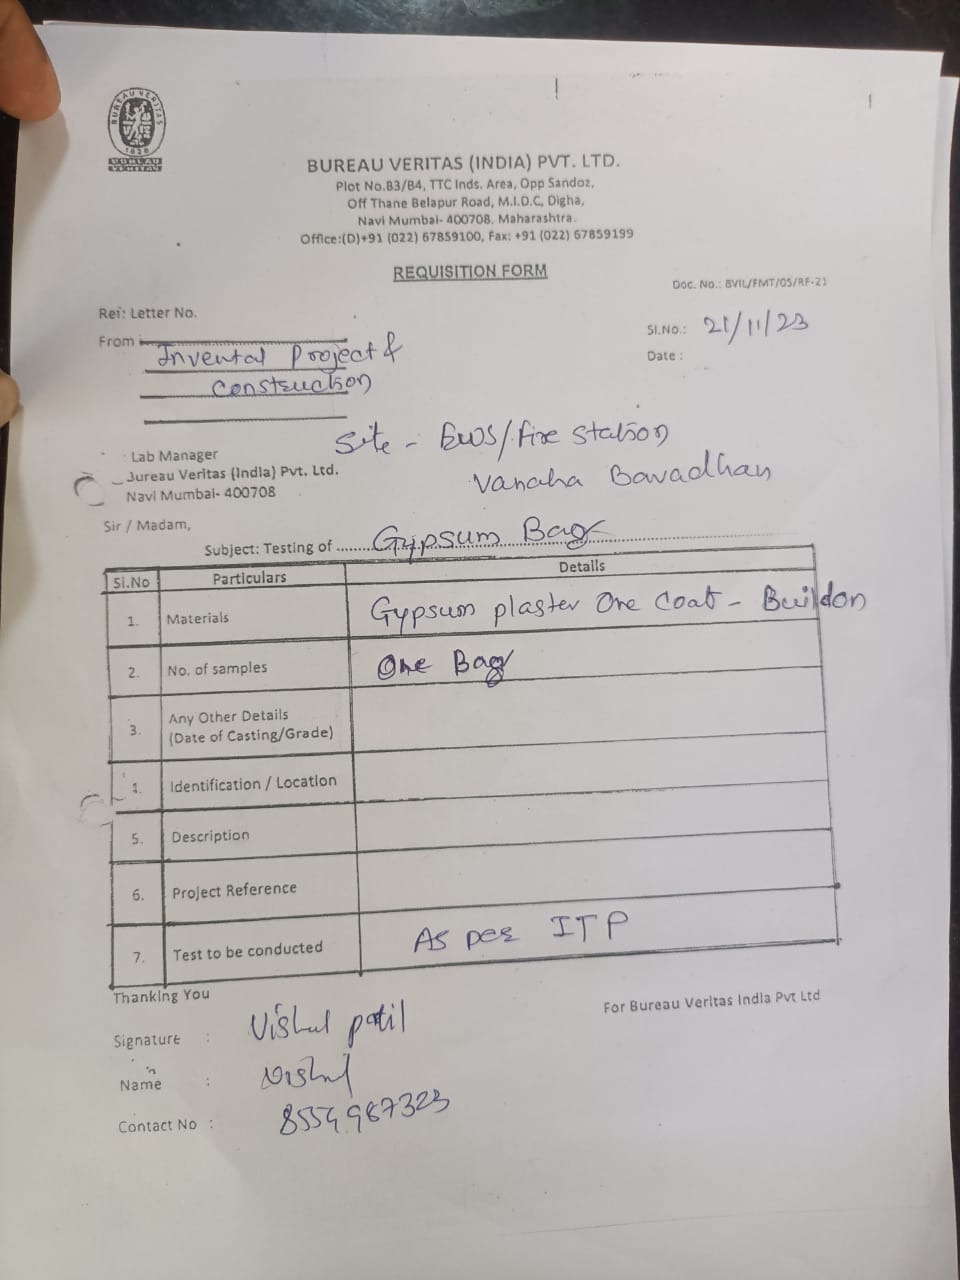 BUREAU VERITAS
1828
BUREAU
VERITAS
BUREAU VERITAS (INDIA) PVT. LTD.
Plot No.B3/B4, TTC Inds. Area, Opp Sandoz,
Off Thane Belapur Road, M.I.D.C, Digha,
Navi Mumbai- 400708. Maharashtra.
Office:(D)+91 (022) 67859100, Fax: +91 (022) 67859199
REQUISITION FORM
Doc. No.: BVIL/FMT/05/RF-21
Ref: Letter No.
Sl.No.: 21/11/23
From Invental Project &
Construction
Date :
Site - EWS/Fire Station
Vanaha Bavadhan
: Lab Manager
Jureau Veritas (India) Pvt. Ltd.
Navi Mumbai- 400708
Sir / Madam,
Subject: Testing of ........Gypsum Bag
Sl.No Particulars Details
1. Materials Gypsum plaster One Coat - Buildon
2. No. of samples One Bag
3. Any Other Details
(Date of Casting/Grade)
1. Identification / Location
5. Description
6. Project Reference
7. Test to be conducted As per ITP
Thanking You
For Bureau Veritas India Pvt Ltd
Signature : Vishul patil
Name : Vishul
Contact No : 8554987323